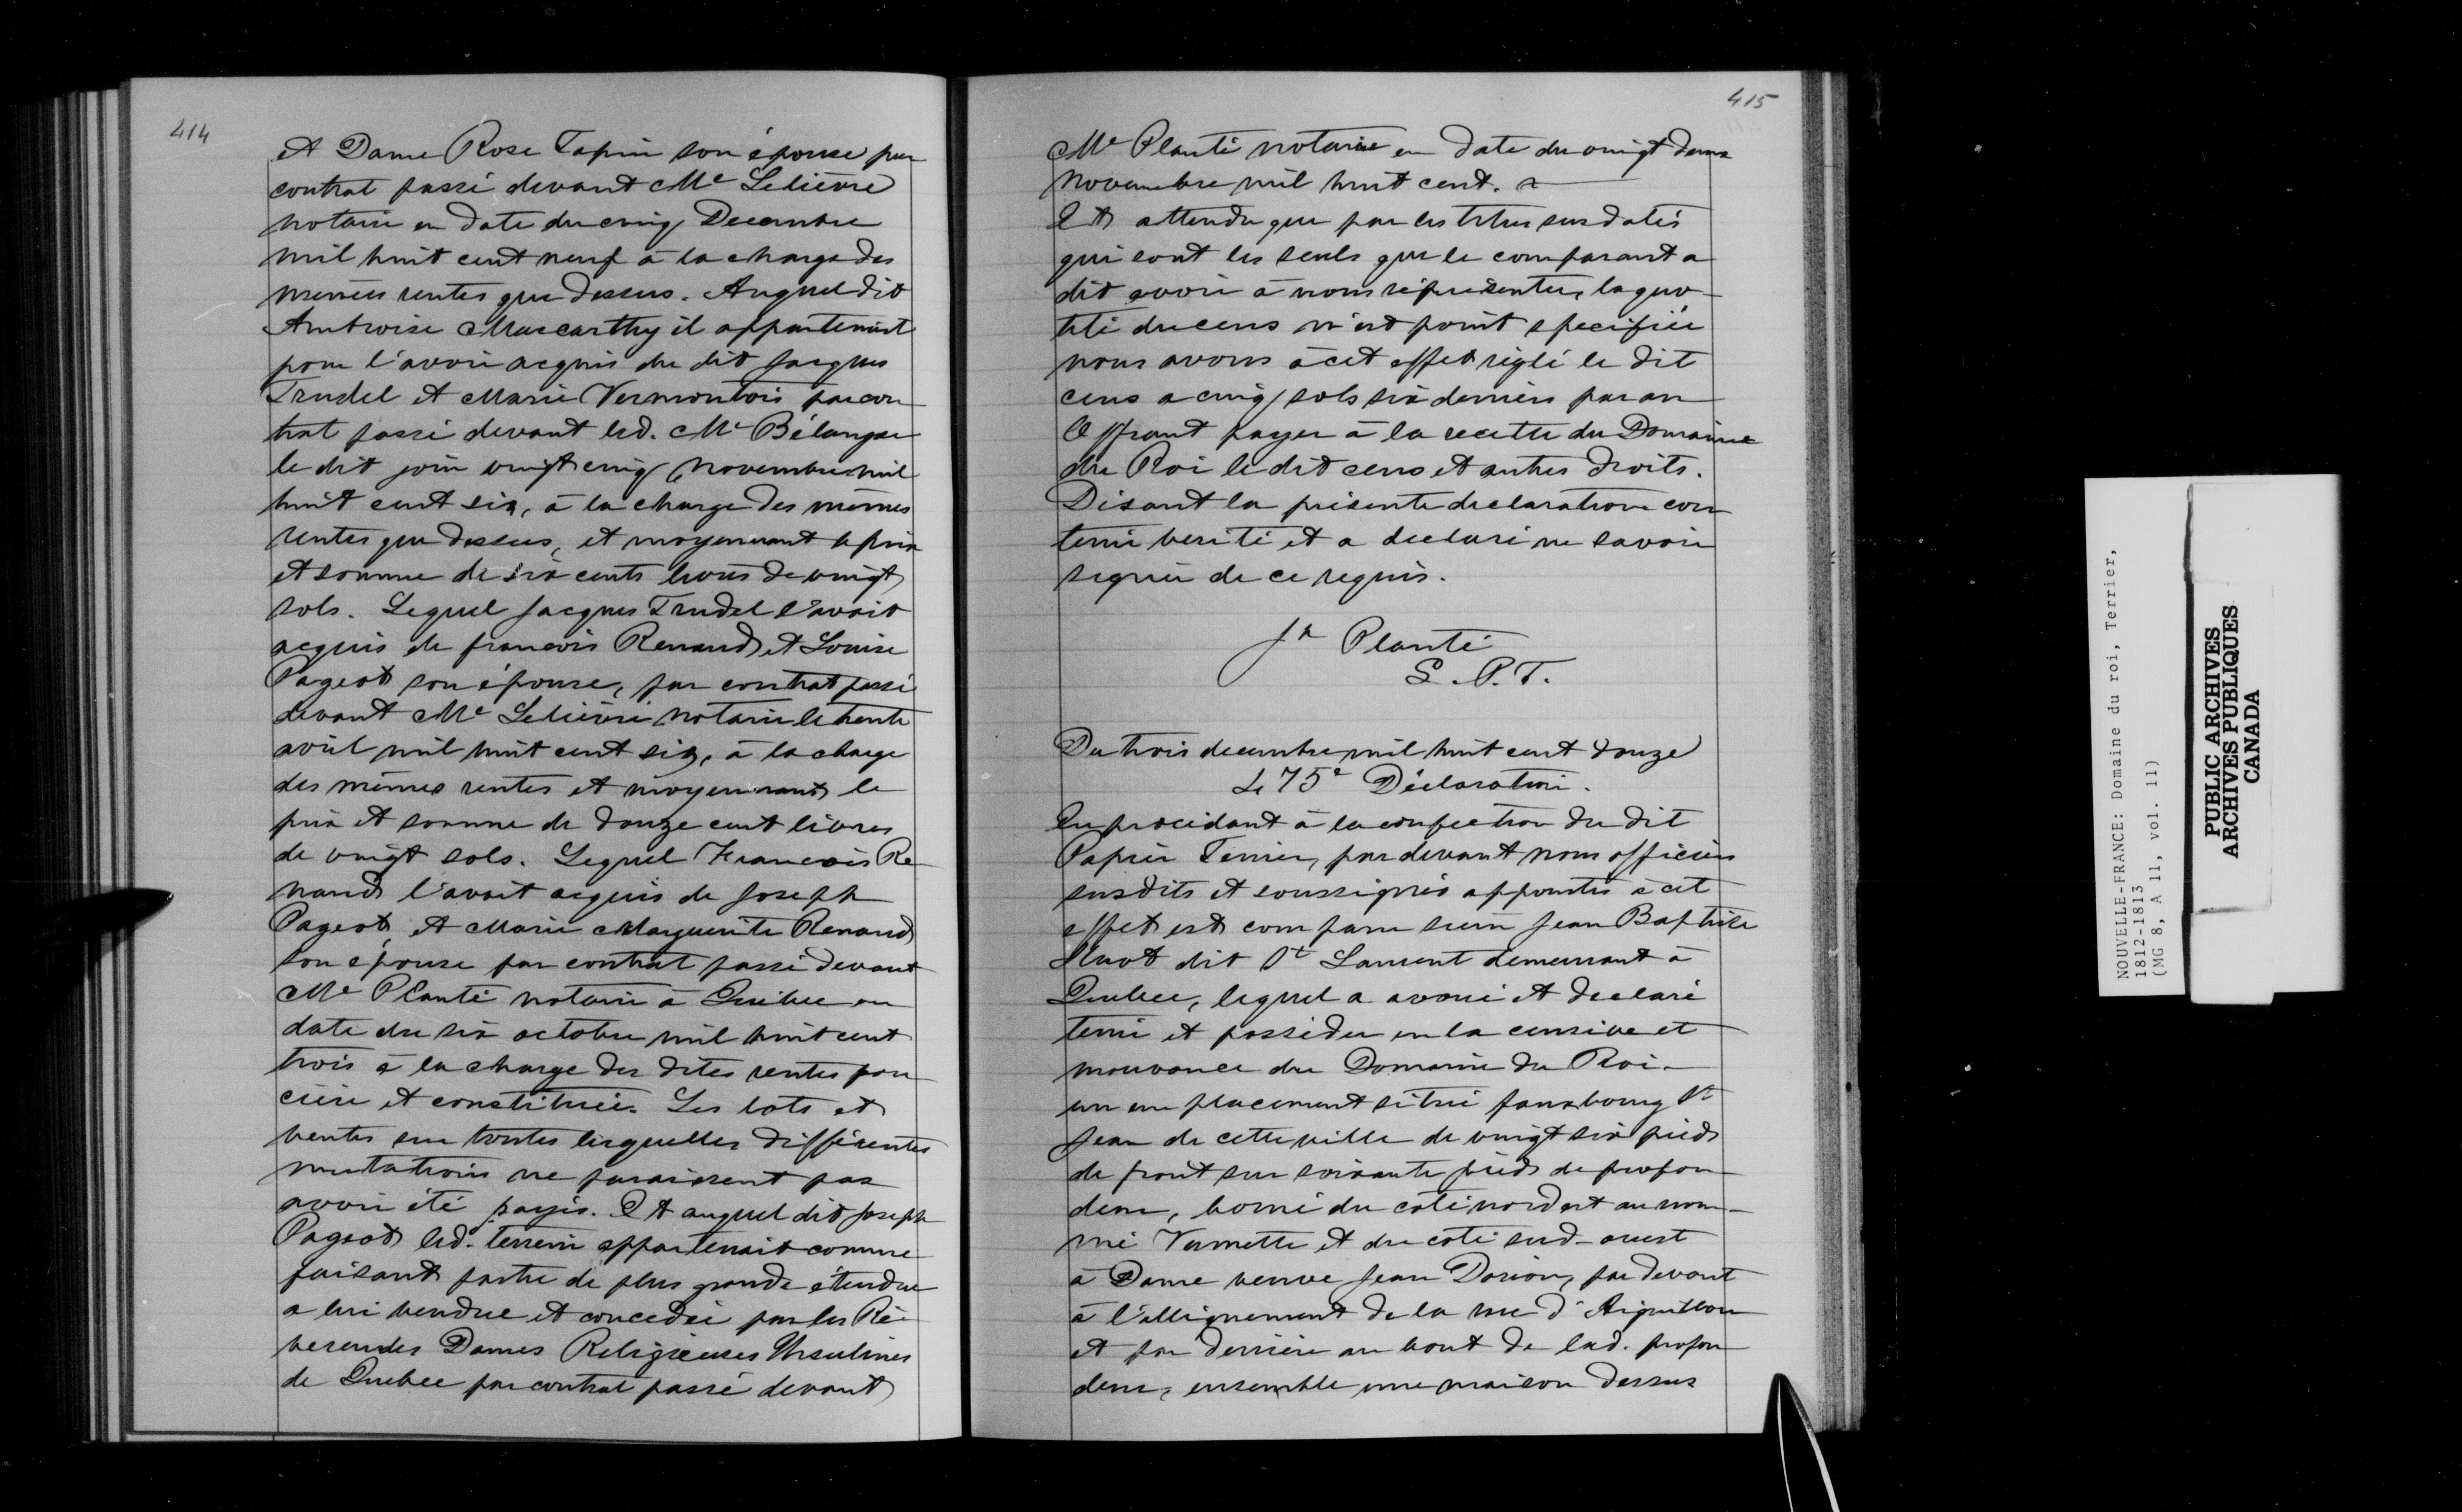 414
et Dame Rose Tapin son épouse par
contrat passé devant Me Lelièvre
notaire en date du cinq Decembre
mil huit cent neuf à la charge des
mêmes rentes que dessus. Auquel dit
Ambroise Maccarthy il appartenait
pour l'avoir acquis du dit Jacques
Trudel et Marie Vermontois par con
trat passé devant led. Me Bélanger
le dit jour vingt cinq novembre mil
huit cent six, à la charge des mêmes
rentes que dessus, et moyennant le prix
et somme de six cents livres de vingt
sols. Lequel Jacques Trudel l'avait
acquis de francois Renaud et Louise
Pageot son épouse, par contrat passé
devant Me Lelièvre notaire le trente
avril mil huit cent six, à la charge
des mêmes rentes et moyennant le
prix et somme de douze cent livres
de vingt sols. Lequel Francois Re
naud l'avait acquis de Joseph
Pageot et Marie Marguerite Renaud
son épouse par contrat passé devant
Me Planté notaire à Quebec en
date du six octobre mil huit cent
trois à la charge des dites rentes fon
cière et constituée. Les lots et
ventes sur toutes lesquelles différentes
mutations ne paraissent pas
avoir été payés. Et auquel dit Joseph
Pageot led. terrein appartenait comme
faisant partie de plus grande étendue
a lui vendue et concedée par les Ré-
verendes Dames Religieuses Ursulines
de Quebec par contrat passé devant
415
Me Planté notaire en date du vingt deux
novembre mil huit cent.
Et attendu que par les titres sus datés
qui sont les seuls que le comparant a
dit avoir à nous réprésenter, la quo-
tité du cens n'est point specifiée
nous avons à cet effet réglé le dit
cens a cinq sols six deniers par an
Offrant payer à la recette du Domaine
du Roi le dit cens et autres droits.
Disant la présente declaration con
tenir verité et a declaré ne savoir
signer de ce requis.
Jh Planté
G. P. T.
Du trois decembre mil huit cent douze
Le 75e Déclaration.
En procédant à la confection du dit
Papier Terrier, par devant nous officiers
susdits et soussignés appointés à cet
effet est comparu sieur Jean Baptiste
Huot dit St Laurent demeurant à
Quebec, lequel a avoué et declaré
tenir et posséder en la censive et
mouvance du Domaine du Roi-
un emplacement situé fauxbourg St
Jean de cette ville de vingt six pieds
de front sur soixante pieds de profon
deur, borné du coté nord est au nom-
mé Vermette et du coté sud-ouest
à Dame veuve Jean Dorion, par devant
à l'allignement de la rue d'Aiguillon
et par derrière au bout de lad. profon
deur, ensemble une maison dessus
NOUVELLE-FRANCE: Domaine du roi, Terrier,
1812-1813
(MG 8, A 11, vol. 11)
PUBLIC ARCHIVES
ARCHIVES PUBLIQUES
CANADA